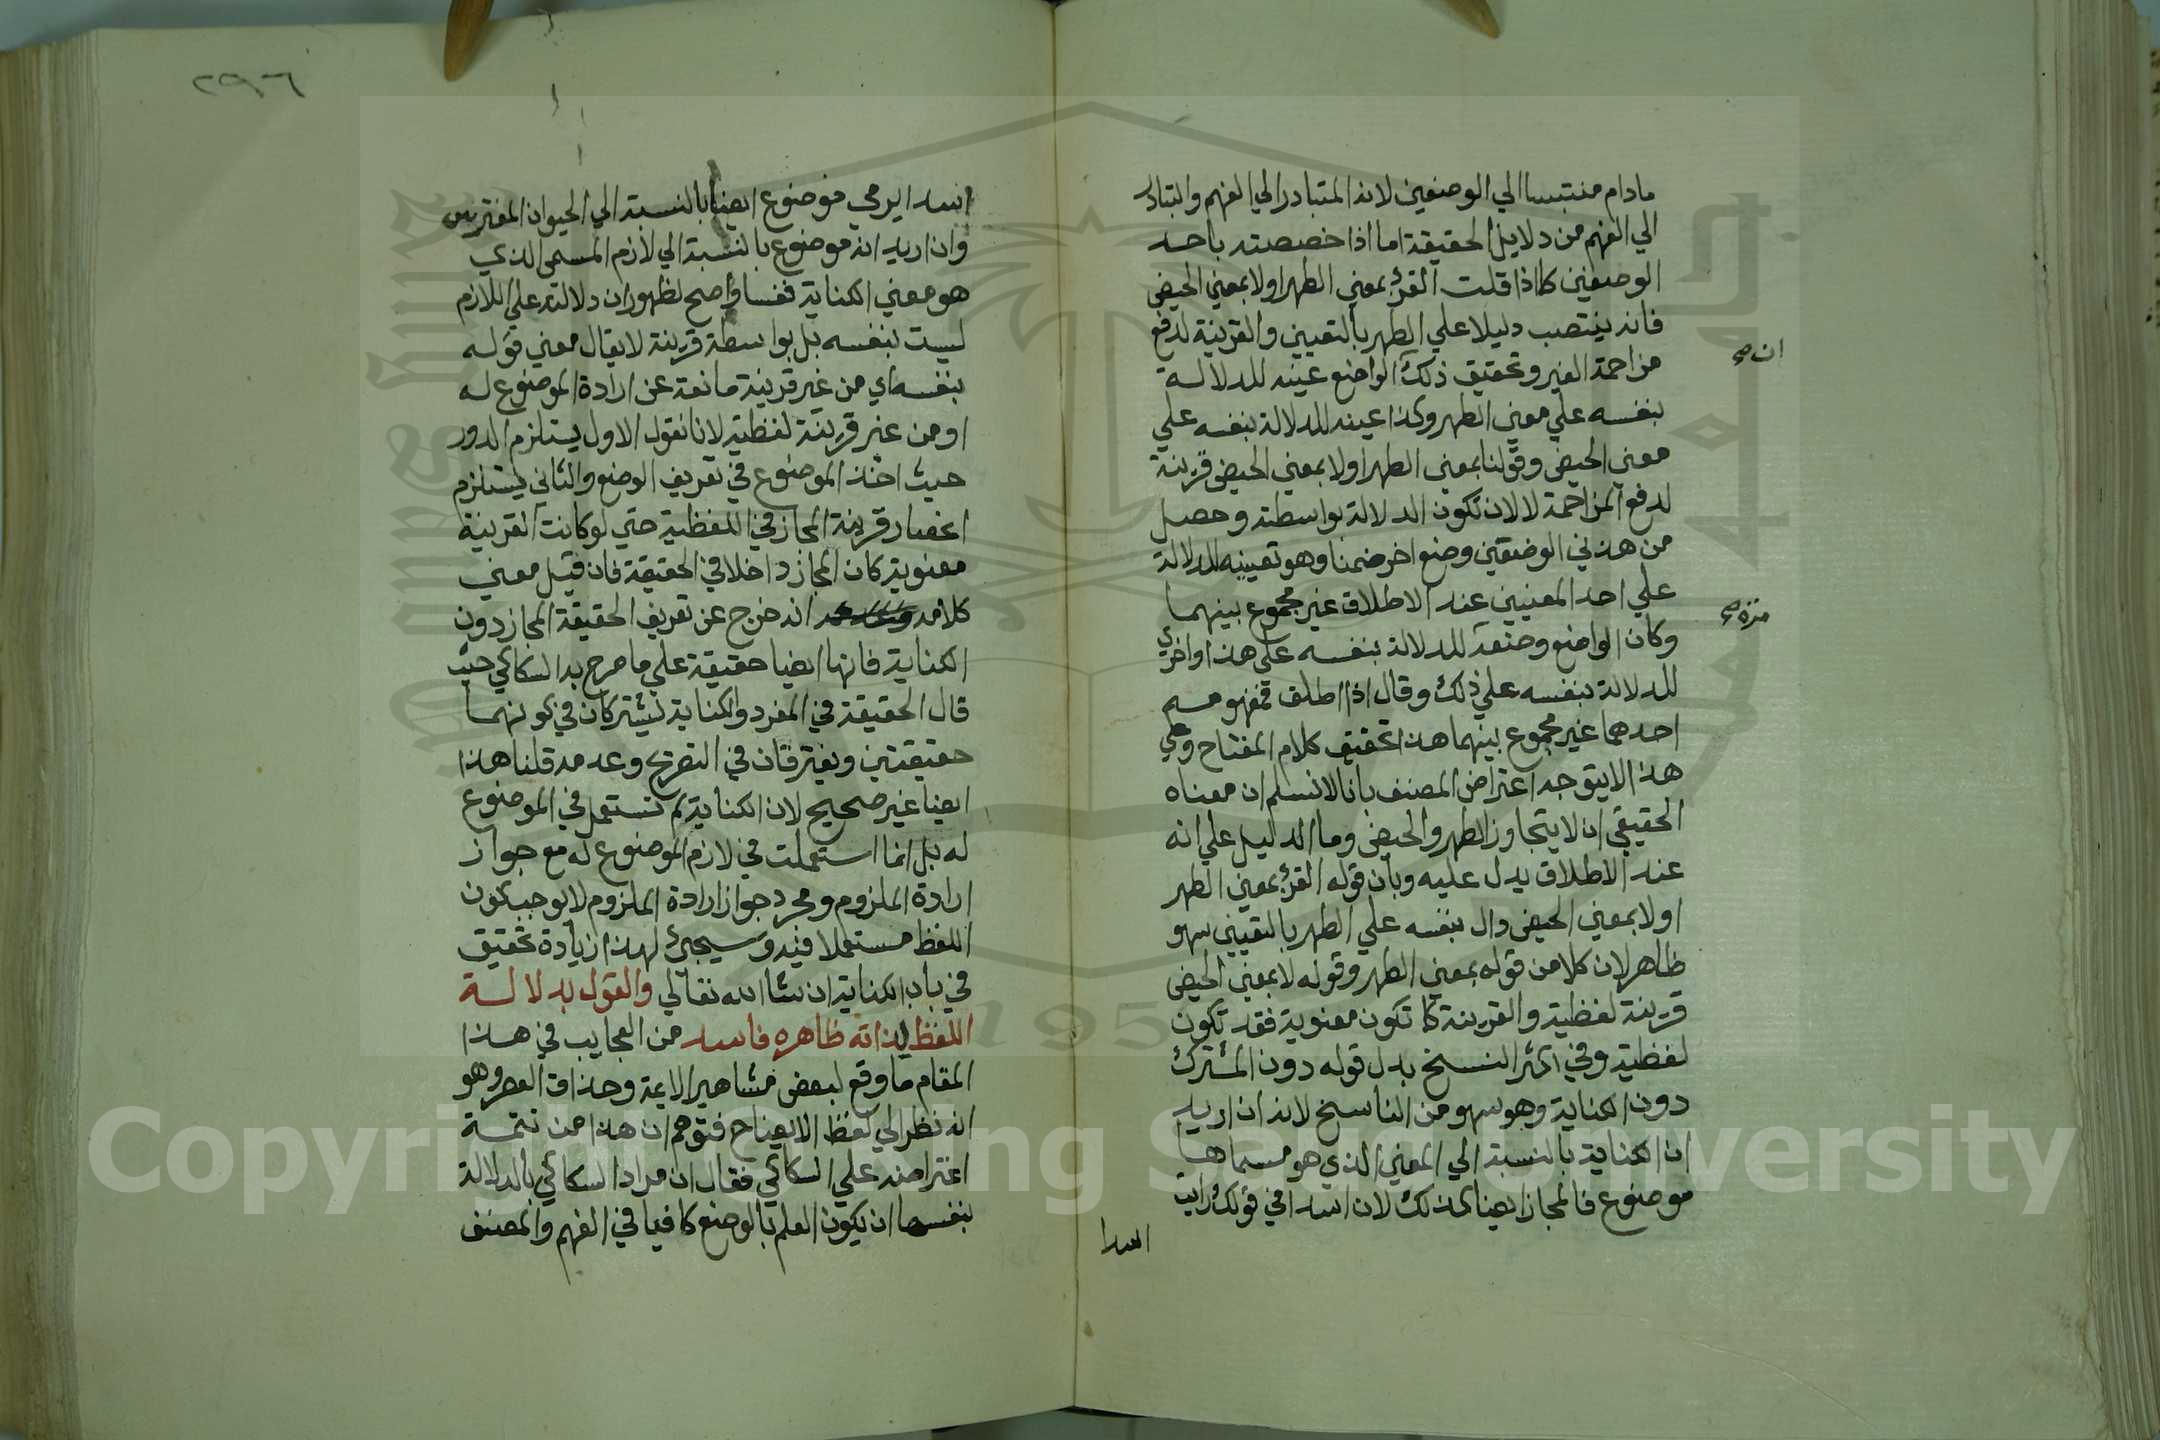 مادام منتسبا الي الوضعين لانه المتبادر الي الفهم والتبادر
الي الفهم من دلايل الحقيقة اما اذا خصصته باحد
الوضعين كما اذا قلت القرء بمعني الطهر اولا بمعني الحيض
فانه ينتصب دليلا علي الطهر بالتعيين والقرينة لدفع
ان صح
مزاحمة الغير وتحقيق ذلك الواضع عينه للدلالة
بنفسه علي معني الطهر وكذا عينه للدلالة بنفسه علي
معني الحيض وقولنا بمعني الطهر اولا بمعني الحيض قرينة
لدفع المزاحمة لا لان تكون الدلالة بواسطته وحصل
من هذين الوضعين وضع اخر ضمنا وهو تعيينه للدلالة
علي احد المعنيين عند الاطلاق غير مجموع بينهما
مرة صح
وكان الواضع وضعه للدلالة بنفسه علي هذا واخري
للدلالة بنفسه علي ذلك وقال اذا اطلق فمفهومه
احدهما غير مجموع بينهما هذا تحقيق كلام المفتاح وعلي
هذا لا يتوجه اعتراض المصنف بانا لا نسلم ان معناه
الحقيقي ان لا يتجاوز الطهر والحيض وما الدليل علي انه
عند الاطلاق يدل عليه وبان قوله القرء بمعني الطهر
اولا بمعني الحيض دال بنفسه علي الطهر بالتعيين سهو
ظاهر لان كلا من قوله بمعني الطهر وقوله لا بمعني الحيض
قرينة لفظية والقرينة كما تكون معنوية فقد تكون
لفظية وفي اكثر النسخ بدل قوله دون المشترك
دون الكناية وهو سهو من الناسخ لانه ان اريد
ان الكناية بالنسبة الي المعني الذي هو مسماها
موضوع فالمجاز ايضا كذلك لان اسدا في قولك رايت
اسدا
٢٩٦
اسدا يرمي موضوع ايضا بالنسبة الي الحيوان المفترس
وان اريد انه موضوع بالنسبة الي لازم المسمي الذي
هو معني الكناية ففساده واضح لظهور ان دلالته علي اللازم
ليست بنفسه بل بواسطة قرينة لا يقال معني قوله
بنفسه اي من غير قرينة مانعة عن ارادة الموضوع له
او من غير قرينة لفظية لانا نقول الاول يستلزم الدور
حيث اخذ الموضوع في تعريف الوضع والثاني يستلزم
انحصار قرينة المجاز في اللفظية حتي لو كانت القرينة
معنوية كان المجاز داخلا في الحقيقة فان قيل معني
كلامه انه خرج عن تعريف الحقيقة المجاز دون
الكناية فانها ايضا حقيقة علي ما صرح به السكاكي حيث
قال الحقيقة في المفرد والكناية تشتركان في كونهما
حقيقتين ويفترقان في التصريح وعدمه قلنا هذا
ايضا غير صحيح لان الكناية لم تستعمل في الموضوع
له بل انما استعملت في لازم الموضوع له مع جواز
ارادة الملزوم ومجرد جواز ارادة الملزوم لا يوجب كون
اللفظ مستعملا فيه وسيجئ لهذا زيادة تحقيق
في باب الكناية ان شا الله تعالي والقول بدلالة
اللفظ لذاته ظاهره فاسد من العجايب في هذا
المقام ما وقع لبعض مشاهير الايمة وحذاق العصر وهو
انه نظر الي لفظ الايضاح فتوهم ان هذا من تتمة
اعتراضه علي السكاكي فقال ان مراد السكاكي بالدلالة
بنفسها ان يكون العلم بالوضع كافيا في الفهم والمصنف